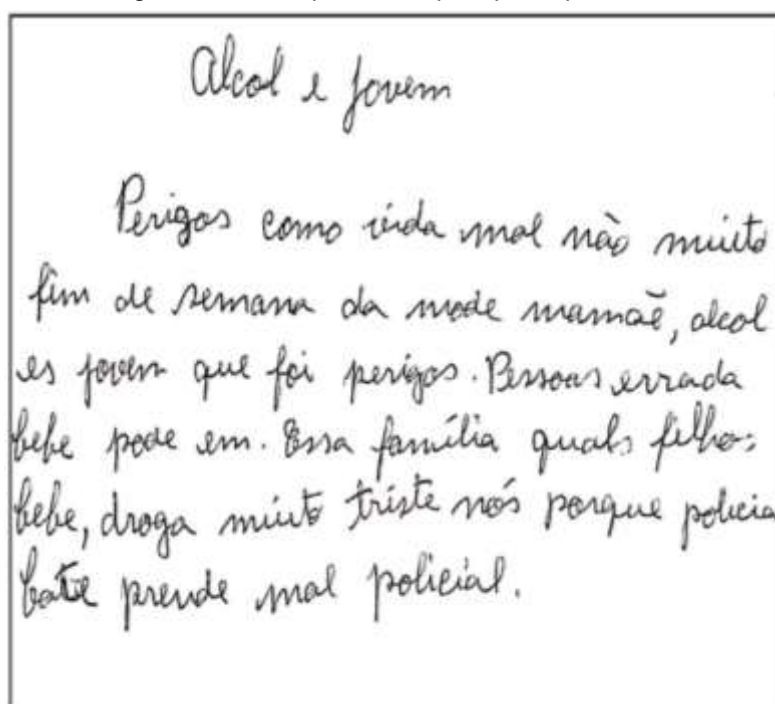 Alcol e Jovem
Perigos como vida mal não muito
fim de semana da mode mamãe, alcol
es jovem que foi perigos. Pessoas errada
bebe pode em. Essa família quals filho:
bebe, droga muito triste nós porque policia
bate prende mal policial.